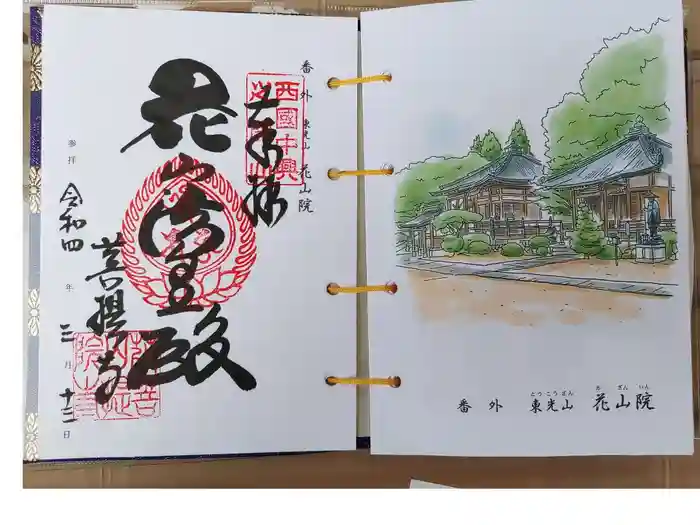 番外 東光山 花山院
奉拝
西國中興
花山法皇殿
菩提寺
参拝 令和四年 三月 十三日
とうこうざん かざんいん
番外 東光山 花山院